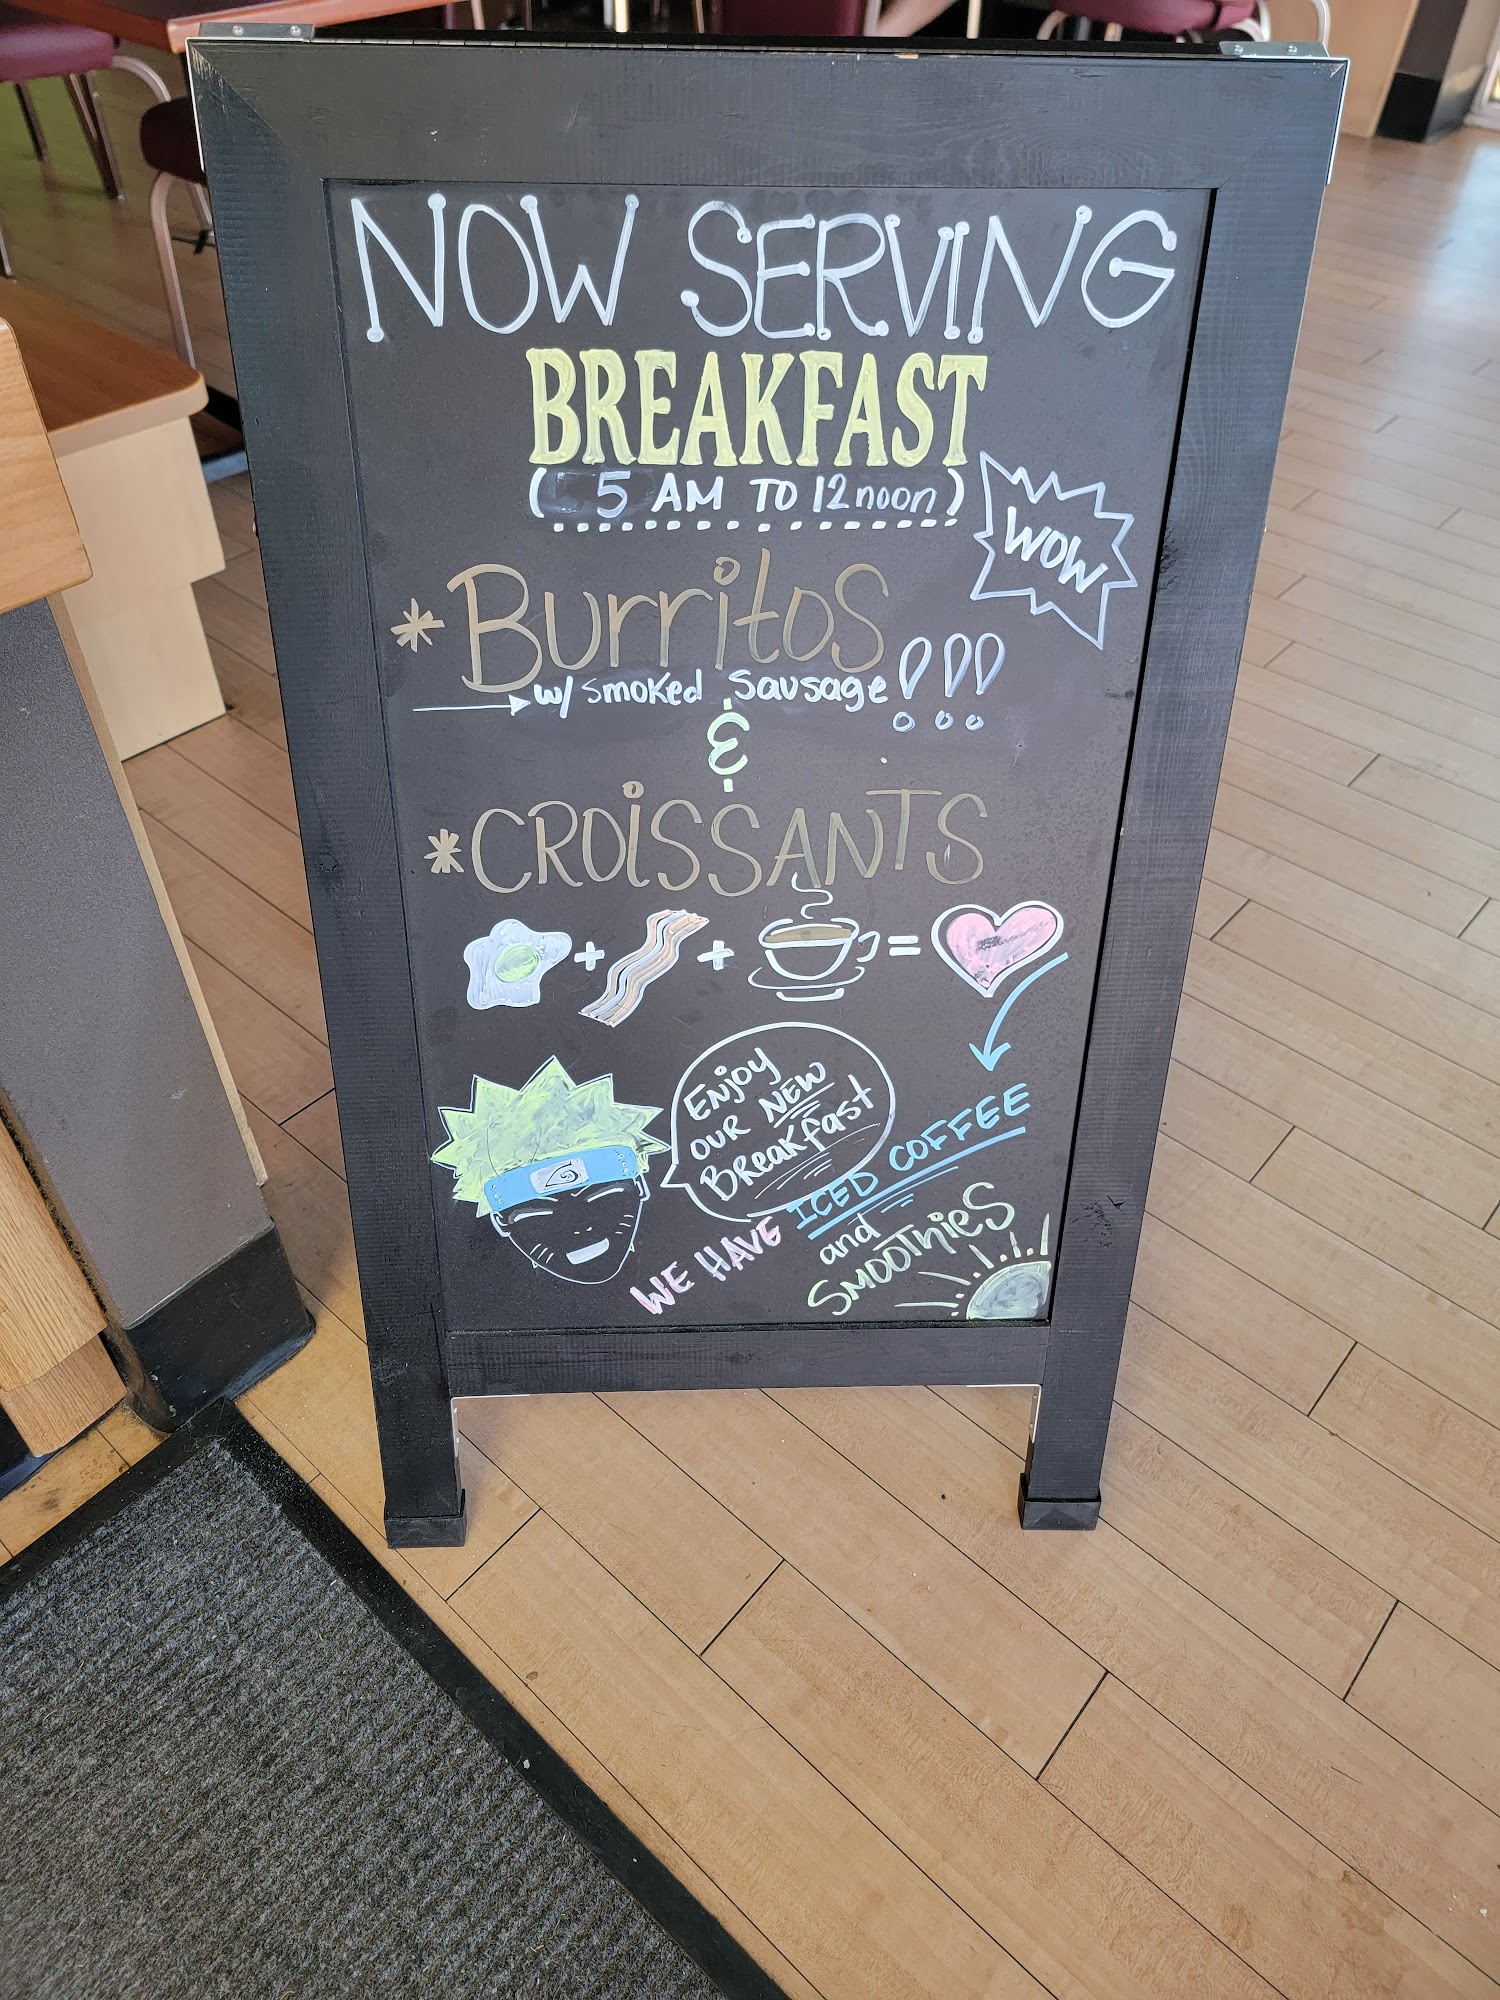 NOW SERVING
BREAKFAST
( 5 AM TO 12 noon )
WOW
* Burritos
w/ smoked sausage !!!
&
* CROISSANTS
+ + =
Enjoy
our NEW
Breakfast
WE HAVE ICED COFFEE
and
SMOOTHIES